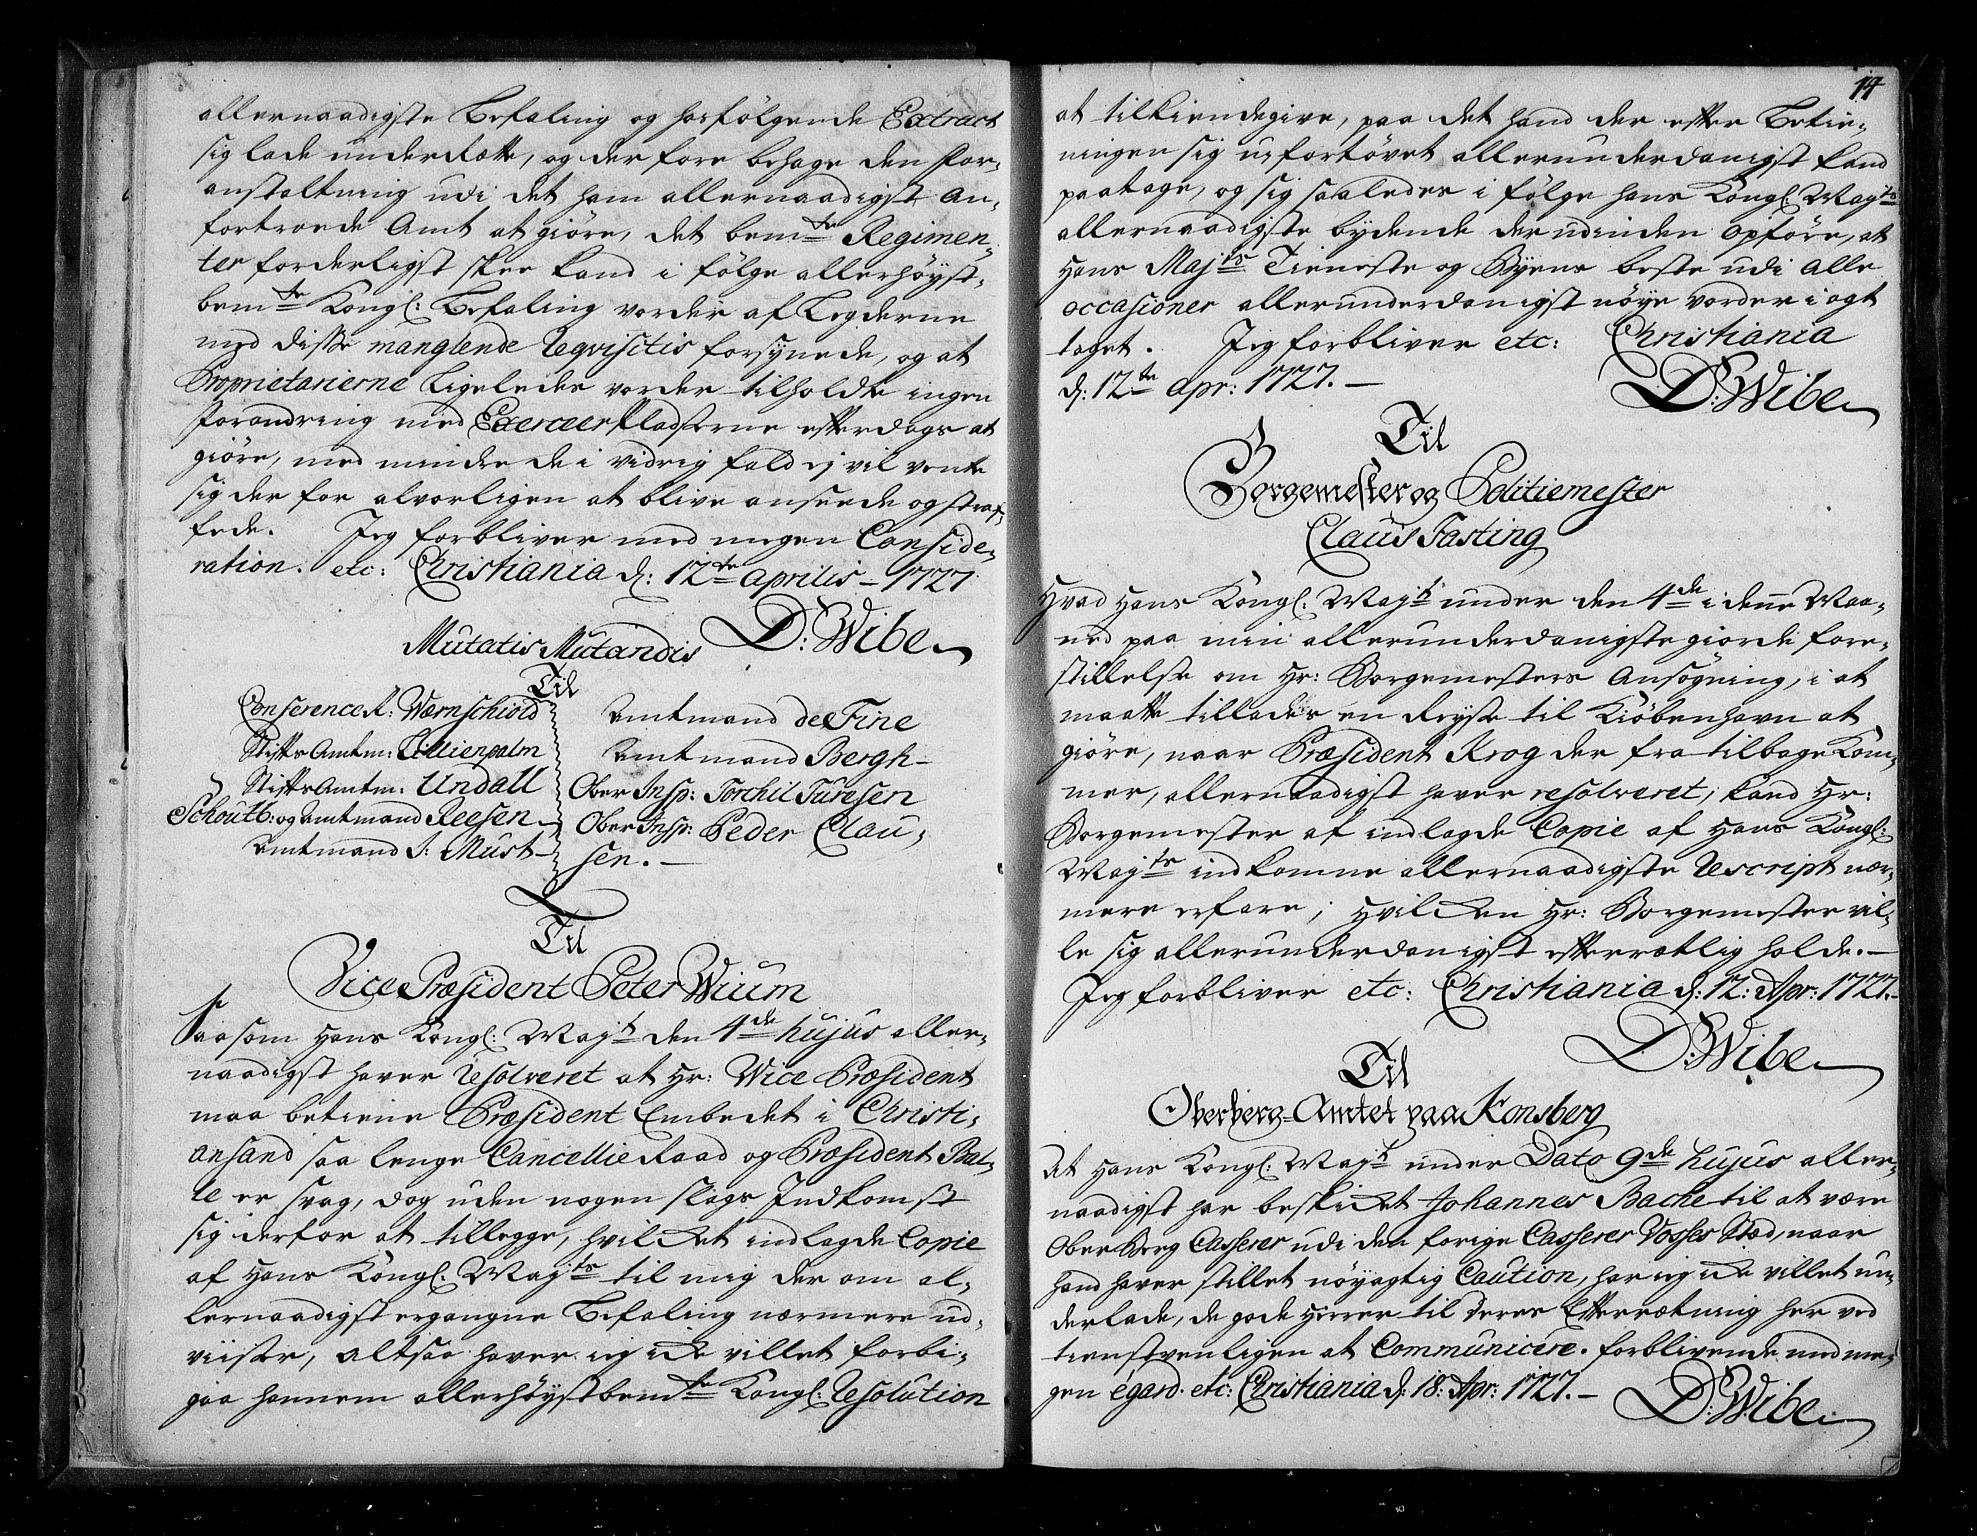 allernaadigste Befaling og hosfölgende Extract
sig lade underrette, og derfore behage den For-
anstaltning udi det ham allernaadigst an-
fortroede Amt at giöre, det bemte Regimen-
ter forderligst skee kand i fölge allerhöyst-
bemte Kongl: Befaling vorder af Legderne
med disse manglende Reqvisitis forsynede, og at
Proprietarierne ligeledes vorder tilholdte ingen
Forandring med Exerceer Pladserne efterdags at
giöre, med mindre de i vidrig fald ej vil vente
sig derfor alvorligen at blive anseede og straf-
fede. Jeg forbliver med megen Conside-
ration. etc: Christiania d: 12te Aprilis 1727
D: Wibe
Mutatis Mutandis
Til
Conference R: Wærnschiold
Stifts Amtm: Lillienpalm
Stifts Amtm: Undall
Schoutb: og Amtmand Reesen
Amtmand S: Must
Amtmand de Fine
Amtmand Bergh
Ober Insp: Torchil Turesen
Ober Insp: Peder Clau-
sen.
Til
Vice Præsident Peter Wium
Saasom Hans Kongl: Mayt den 4de hujus aller-
naadigst haver Resolveret at Hr: Vice Præsident
maa betiene Præsident Embedet i Christi-
ansand saa lenge Cancellie Raad og Præsident Bal-
le er svag, dog uden nogen slags Indkomst
sig derfor at tillegge, hvilcket indlagde Copie
af Hans Kongl: Mayts til mig der om al-
lernaadigst ergangne Befaling nærmere ud-
viiser, altsaa haver jeg icke villet forbi-
gaa hannem allerhöystbemte Kongl: Resolution
14
at tilkiendegive, paa det hand der efter Betie-
ningen sig uofortövet allerunderdanigst kand
paatage, og sig saaledes i fölge hans Kongl: Mayts
allernaadigste bydende derudinden opföre, at
Hans Majts Tieneste og Byens beste udi alle
occasioner allerunderdanigst nöye vorder i agt
taget. Jeg forbliver etc: Christiania
d: 12te Apr: 1727.
D: Wibe
Til
Borgemester og Politiemester
Claus Fasting
Hvad Hans Kongl: Mayt under den 4de i denne Maa-
ned paa min allerunderdanigste giorde fore-
stillelse om Hr: Borgemesters Ansögning, i at
maatte tillades en Reyse til Kiöbenhavn at
giöre, naar Præsident Krog der fra tilbage kom-
mer, allernaadigst haver resolveret, kand Hr:
Borgemester af indlagde Copie af Hans Kongl:
Mayts indkomne allernaadigste Rescript nær-
mere erfare; Hvilcken Hr: Borgemester vil-
le sig allerunderdanigst efterrætlig holde.
Jeg forbliver etc: Christiania d: 12: Apr: 1727.
D: Wibe
Til
Oberberg-Amtet paa Konsberg
At Hans Kongl: Mayt under Dato 9de hujus aller-
naadigst har beskicket Johannes Bache til at være
Ober Berg Casserer udi den forige Casserer Vosses Sted, naar
hand haver stillet nöyagtig Caution, har jeg icke villet un-
derlade, de gode Herrer til deres Efterrætning her ved
tienstvenligen at Communicere. forblivende med me-
gen egard. etc: Christiania d: 18: Apr: 1727.
D: Wibe